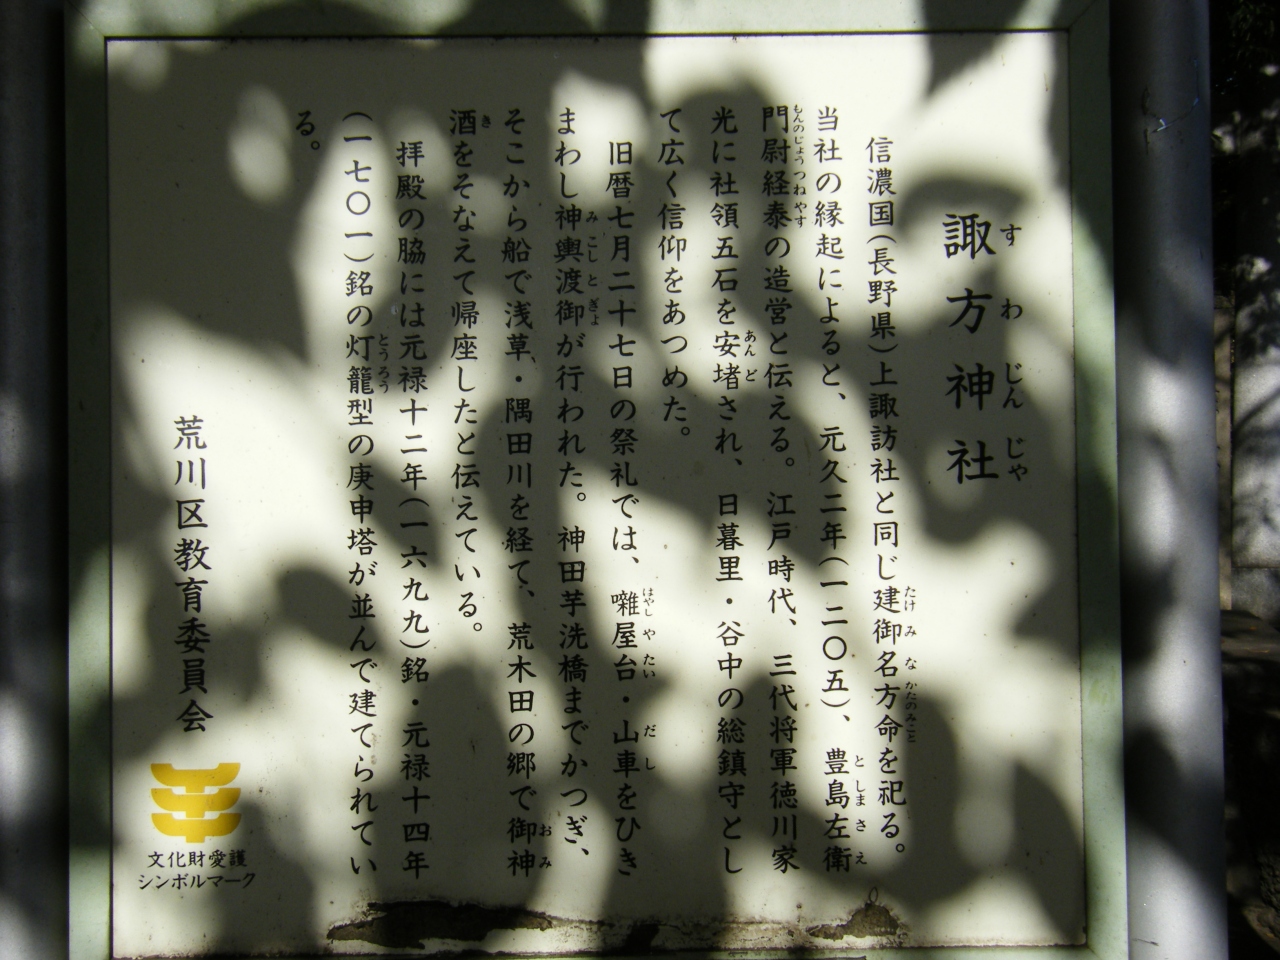 諏方神社
すわじんじゃ
信濃国(長野県)上諏訪社と同じ建御名方命を祀る。
たけみなかたのみこと
当社の縁起によると、元久二年(一二〇五)、豊島左衛
としまさえ
門尉経泰の造営と伝える。江戸時代、三代将軍徳川家
もんのじょうつねやす
光に社領五石を安堵され、日暮里・谷中の総鎮守とし
あんど
て広く信仰をあつめた。
旧暦七月二十七日の祭礼では、囃屋台・山車をひき
はやしやたいだし
まわし神輿渡御が行われた。神田芋洗橋までかつぎ、
みこしとぎょ
そこから船で浅草・隅田川を経て、荒木田の郷で御神
おみ
酒をそなえて帰座したと伝えている。
き
拝殿の脇には元禄十二年(一六九九)銘・元禄十四年
(一七〇一)銘の灯籠型の庚申塔が並んで建てられてい
とうろう
る。
荒川区教育委員会
文化財愛護
シンボルマーク